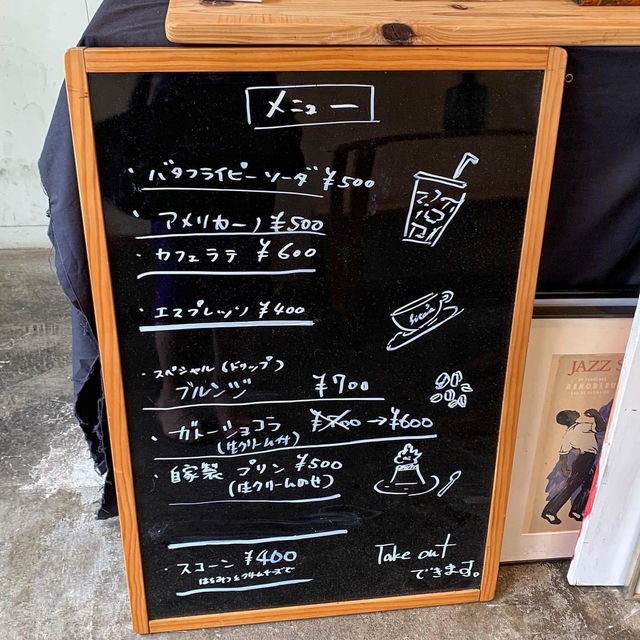 メニュー
・バタフライピーソーダ ¥500
・アメリカーノ ¥500
・カフェラテ ¥600
・エスプレッソ ¥400
・スペシャル(ドリップ)
ブルンジ ¥700
・ガトーショコラ ¥700→¥600
(生クリーム付)
・自家製 プリン ¥500
(生クリームのせ)
・スコーン ¥400
はちみつとクリームチーズで
Take out
できます。
JAZZ S